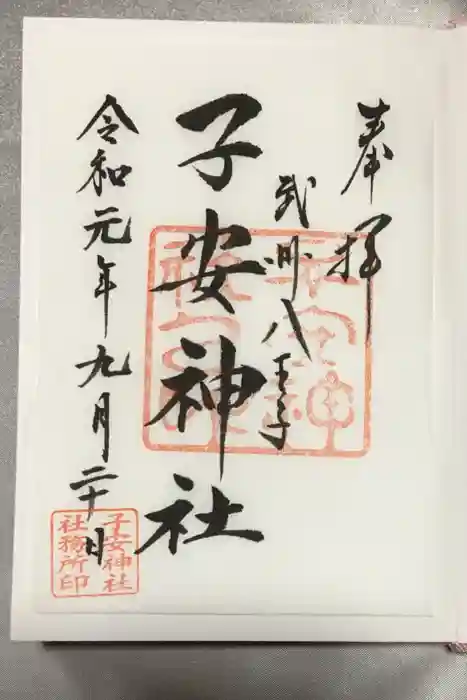 奉拝
武州八王子
子安神社
令和元年九月二十日
子安神
社
子安神社
社務所印